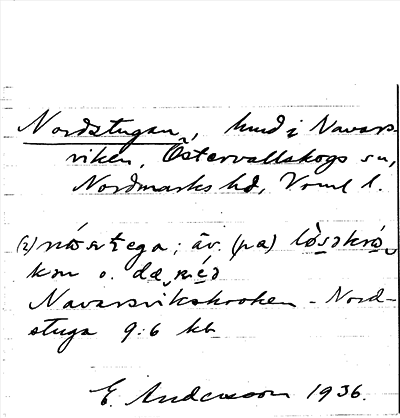 Nordstugan, hmd i Navars-
viken, Östervallskogs sn,
Nordmarks hd, Vrml l.
(2) ; äv. (på)
o.
Navarsvikskroken - Nord-
stuga 9:6 kb
E. Andersson 1936.